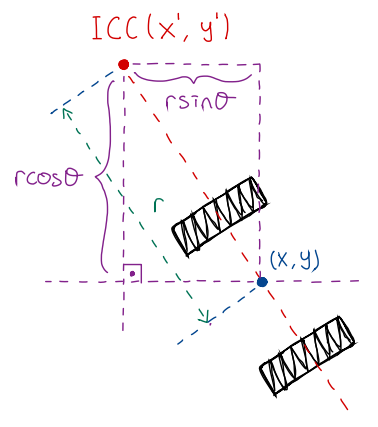 ICC(x', y')
rsinθ
rcosθ
r
(x, y)